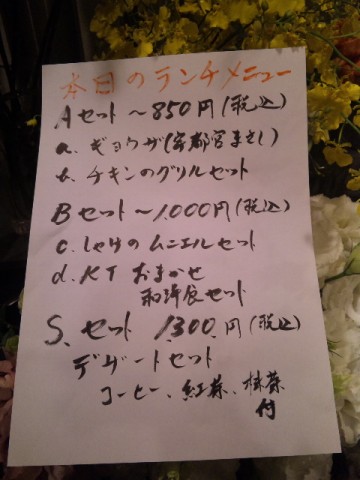 本日のランチメニュー
Aセット〜850円(税込)
a. ギョウザ(宇都宮まさし)
b. チキンのグリルセット
Bセット〜1,000円(税込)
c. しゃけのムニエルセット
d. KTおまかせ
和洋食セット
S.セット 1,300円(税込)
デザートセット
コーヒー、紅茶、抹茶
付